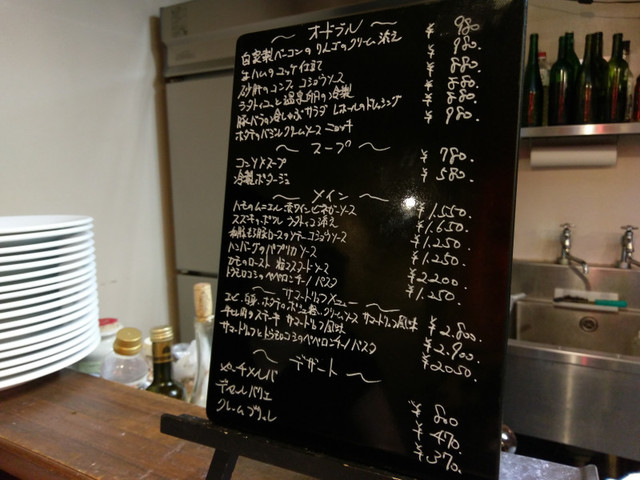 ～ オードブル ～
自家製ベーコンのりんごのクリーム添え ¥980.
生ハムのユッケ仕立て ¥980.
砂肝のコンフィ コショウソース ¥880.
ラタトゥユと温泉卵の冷製 ¥880.
豚バラの冷しゃぶサラダ レホールのドレッシング ¥880.
ホタテのバジルクリームソース ニョッキ ¥980.
～ スープ ～
コンソメスープ ¥780.
冷製ポタージュ ¥580.
～ メイン ～
ハモのムニエル 赤ワインビネガーソース ¥1.550.
スズキのポワレ ラタトゥユ添え ¥1.650.
豚肩ロースのソテー コショウソース ¥1.250.
ハンバーグのパプリカソース ¥1.250.
ひな鳥のロースト 粒マスタードソース ¥2.200.
トラモロコシのペペロンチーノパスタ ¥1.250.
～ サマートリュフメニュー ～
エビ、ホタテのポワレ クリームソース サマートリュフ風味 ¥2.800.
牛ヒ肉ステーキ サマートリュフ風味 ¥2.900.
サマートリュフとトラモロコシのペペロンチーノパスタ ¥2050.
～ デザート ～
ピーチメルバ ¥800
デザールパフェ ¥470.
クレームブリュレ ¥370.